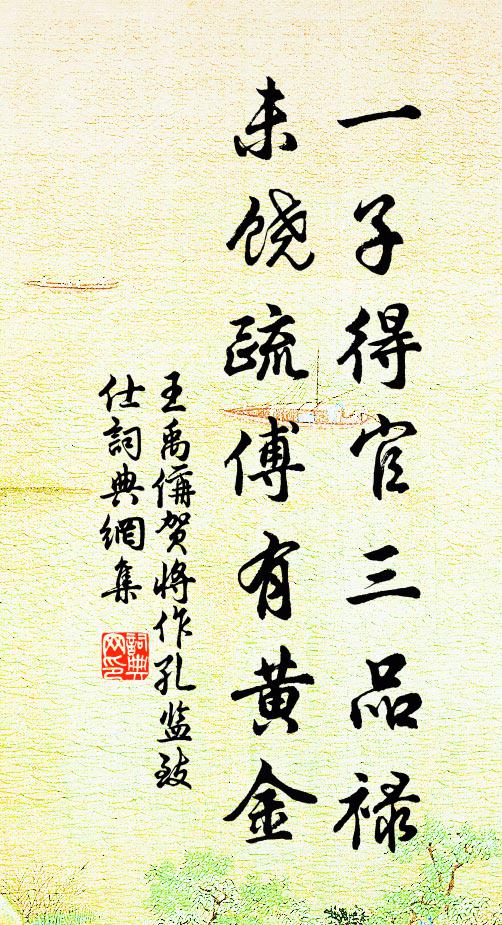 一子得官三品禄
未饶疏傅有黄金
王禹偁贺将作孔监致
仕詞典網集
詞典
网印